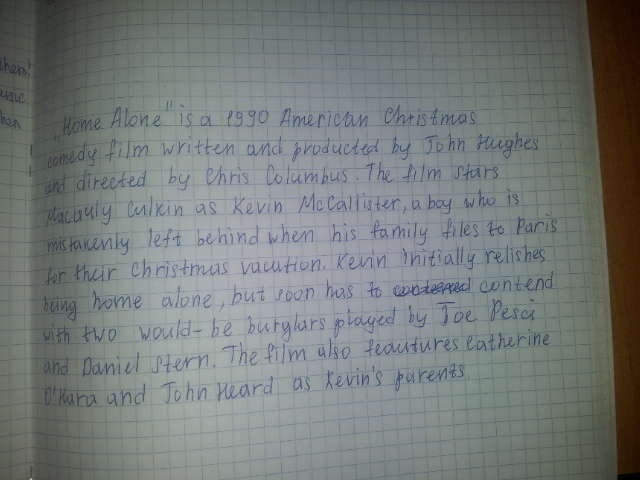 them,
music
han
„Home Alone" is a 1990 American Christmas
comedy film written and producted by John Hughes
and directed by Chris Columbus. The film stars
Macauly Culkin as Kevin McCallister, a boy who is
mistakenly left behind when his family flies to Paris
for their Christmas vacation. Kevin initially relishes
being home alone, but soon has to contend
with two would-be burglars played by Joe Pesci
and Daniel Stern. The film also feautures Catherine
O'Hara and John Heard as Kevin's parents